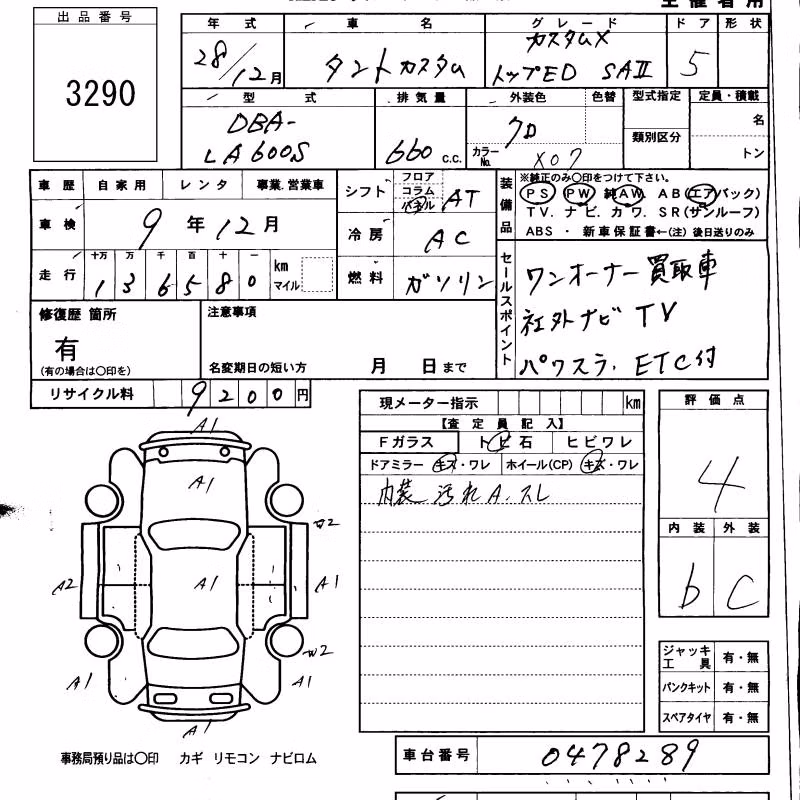 出品番号
3290
年 式 車 名 グレード ドア 形状
28/12月 タントカスタム カスタムX トップED SAⅡ 5
型 式 排気量 外装色 色替 型式指定 定員・積載
DBA-
LA600S 660 C.C. クロ
カラーNo. X07
類別区分 名
トン
車歴 自家用 レンタ 事業.営業車
車検 9年12月
走行 十万 万 千 百 十 一
136580 km マイル
シフト フロア コラム パネル AT
冷房 AC
燃料 ガソリン
装備品
※純正のみ〇印をつけて下さい。
PS PW 純AW. AB(エアバック)
TV. ナビ. カワ. SR(サンルーフ)
ABS ・ 新車保証書←(注) 後日送りのみ
セールスポイント
ワンオーナー買取車
社外ナビ TV
パワスラ. ETC付
修復歴 箇所
有
(有の場合は〇印を)
注意事項
名変期日の短い方 月 日まで
リサイクル料 9200円
現メーター指示 km
【査定員記入】
Fガラス トビ石 ヒビワレ
ドアミラー キズ・ワレ ホイール(CP) キズ・ワレ
内装 汚れA.スレ
評価点
4
内装 外装
b C
A1
A1
W2
A2 A1 A1
W2
A1 A1
A1
ジャッキ工具 有・無
パンクキット 有・無
スペアタイヤ 有・無
事務局預り品は〇印 カギ リモコン ナビロム
車台番号 0478289